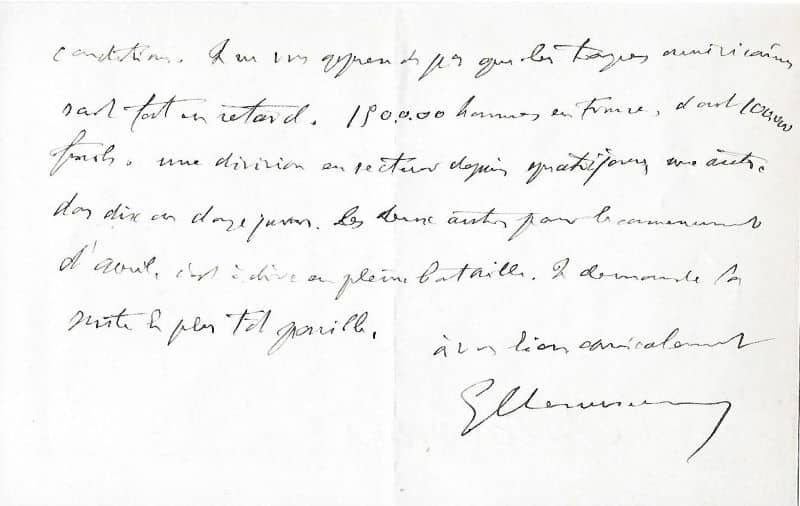 conditions. Je ne vous apprends pas que les troupes américaines
sont fort en retard. 150.000 hommes en France, dont 100.000
fusils. une division en secteur depuis quatre jours, une autre
dans dix ou douze jours. Les deux autres pour le commencement
d'avril, c'est à dire en pleine bataille. Je demande la
suite le plus tôt possible.
à vous bien amicalement
GClemenceau